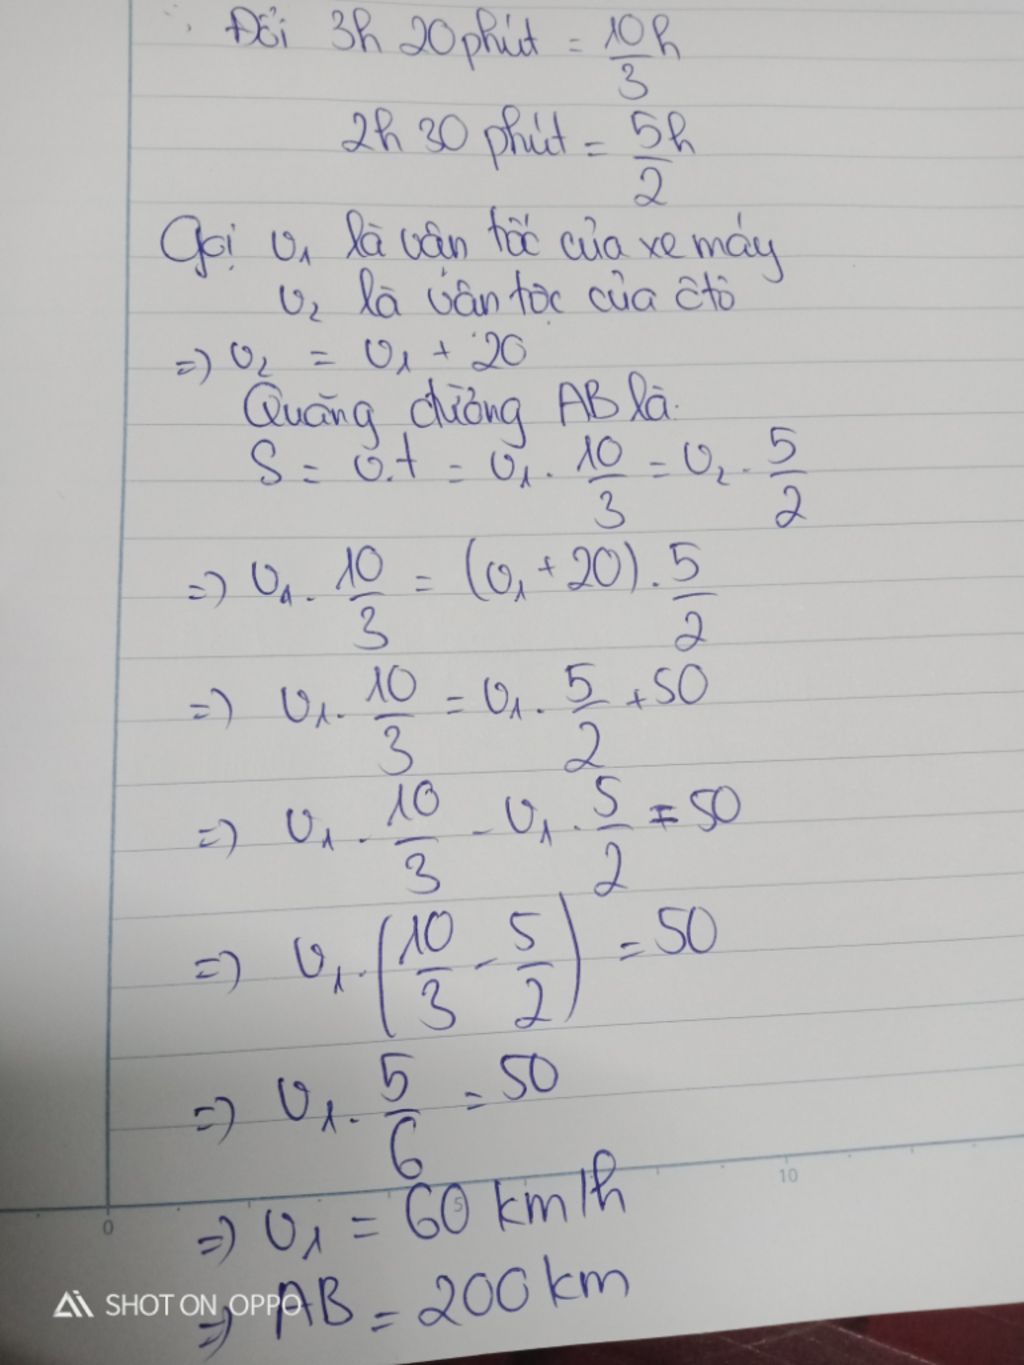 Đổi 3h 20 phút = 10/3 h
2h 30 phút = 5/2 h
Gọi v₁ là vận tốc của xe máy
v₂ là vận tốc của ôtô
=) v₂ = v₁ + 20
Quãng đường AB là:
S = v.t = v₁ . 10/3 = v₂ . 5/2
=) v₁ . 10/3 = (v₁ + 20) . 5/2
=) v₁ . 10/3 = v₁ . 5/2 + 50
=) v₁ . 10/3 - v₁ . 5/2 = 50
=) v₁ . (10/3 - 5/2) = 50
=) v₁ . 5/6 = 50
0 5 10
=) v₁ = 60 km/h
=) AB = 200 km
SHOT ON OPPO